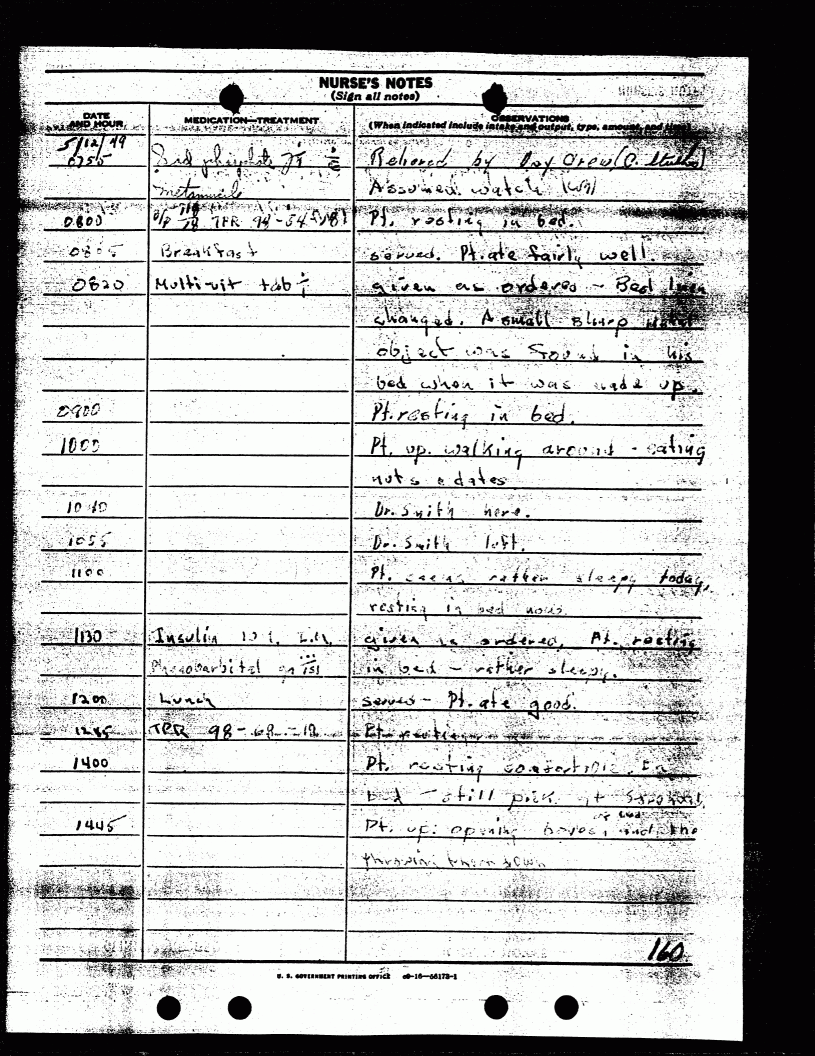 NURSE'S NOTES
(Sign all notes)
DATE AND HOUR
MEDICATION—TREATMENT
OBSERVATIONS
(When indicated include intake and output, type, amount, and
5/12/49
0755
by
Metamucil
Assumed watch
0800
TPR
Pt. resting in bed.
0805 Breakfast served. Pt. ate fairly well.
0820 Multi-vit tab given as ordered - Bed linen
changed. A small sharp metal
object was found in his
bed when it was made up.
0900 Pt. resting in bed.
1000 Pt. up. walking around - eating
nuts & dates
1040 Dr. Smith here.
1055 Dr. Smith left.
1100 Pt. seems rather sleepy today,
resting in bed now.
1130 Insulin given as ordered, Pt. resting
Phenobarbital in bed - rather sleepy.
1200 Lunch served - Pt. ate good.
TPR 98-68-18 Pt. resting
1400 Pt. resting comfortable. In
bed - still pick at
1445 Pt. up. opening boxes, and the
throwing them down
160
U. S. GOVERNMENT PRINTING OFFICE